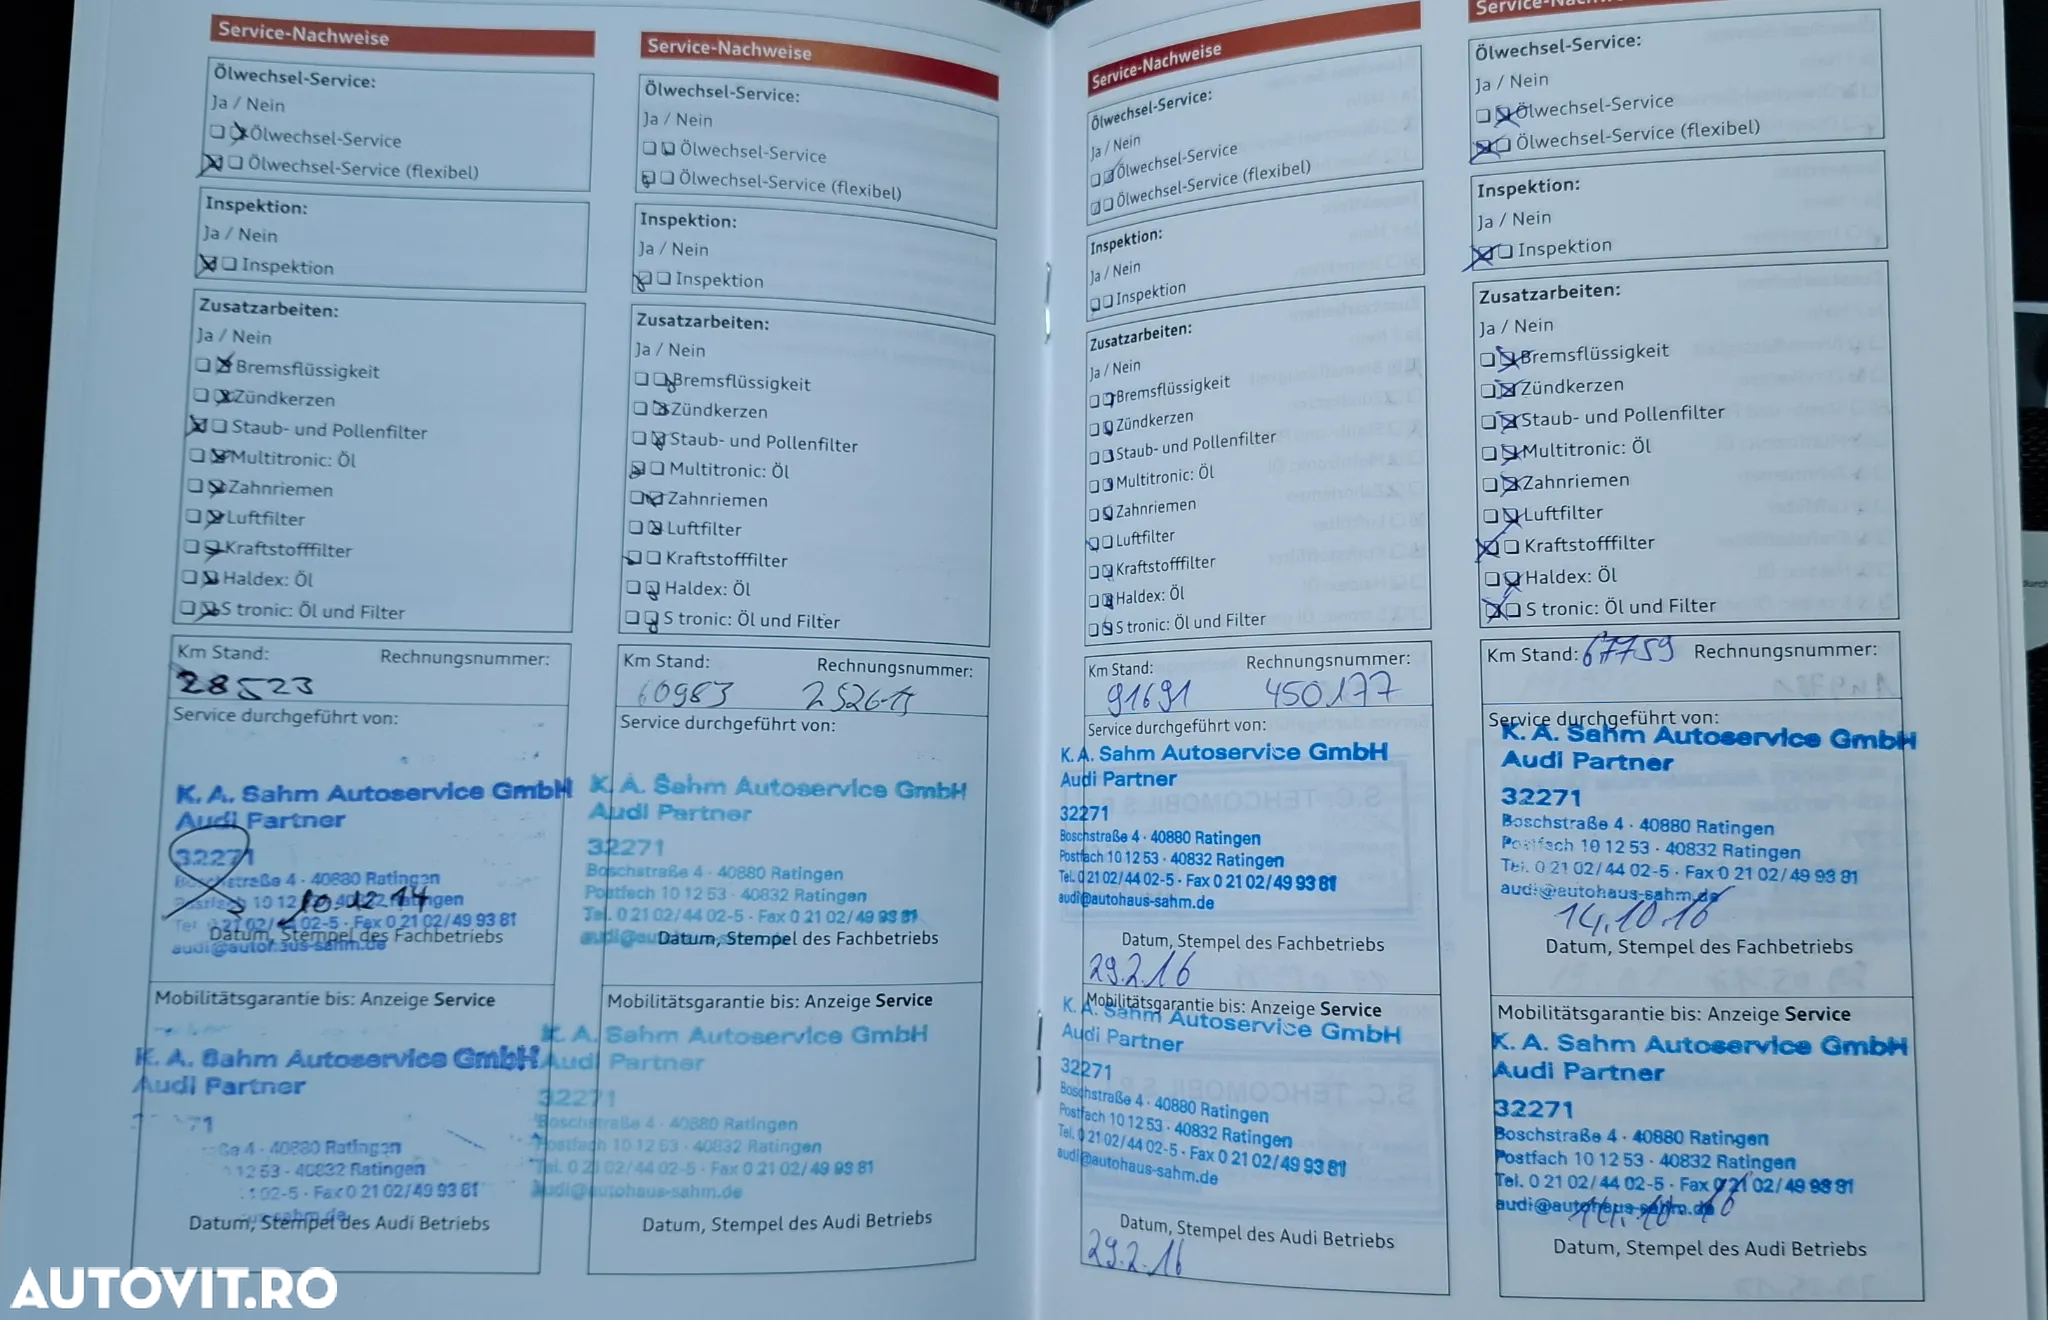 Service-Nachweise
Ölwechsel-Service:
Ja / Nein
Ölwechsel-Service
Ölwechsel-Service (flexibel)
Inspektion:
Ja / Nein
Inspektion
Zusatzarbeiten:
Ja / Nein
Bremsflüssigkeit
Zündkerzen
Staub- und Pollenfilter
Multitronic: Öl
Zahnriemen
Luftfilter
Kraftstofffilter
Haldex: Öl
S tronic: Öl und Filter
Km Stand: Rechnungsnummer:
28523
Service durchgeführt von:
K. A. Sahm Autoservice GmbH
Audi Partner
32271
Boschstraße 4 · 40880 Ratingen
Postfach 10 12 53 · 40832 Ratingen
10.12.14
Tel. 0 21 02/44 02-5 · Fax 0 21 02/49 93 81
Datum, Stempel des Fachbetriebs
audi@autohaus-sahm.de
Mobilitätsgarantie bis: Anzeige Service
K. A. Sahm Autoservice GmbH
Audi Partner
71
ße 4 · 40880 Ratingen
12 53 · 40832 Ratingen
02-5 · Fax 0 21 02/49 93 81
sahm.de
Datum, Stempel des Audi Betriebs
Service-Nachweise
Ölwechsel-Service:
Ja / Nein
Ölwechsel-Service
Ölwechsel-Service (flexibel)
Inspektion:
Ja / Nein
Inspektion
Zusatzarbeiten:
Ja / Nein
Bremsflüssigkeit
Zündkerzen
Staub- und Pollenfilter
Multitronic: Öl
Zahnriemen
Luftfilter
Kraftstofffilter
Haldex: Öl
S tronic: Öl und Filter
Km Stand: Rechnungsnummer:
60983
Service durchgeführt von:
K. A. Sahm Autoservice GmbH
Audi Partner
32271
Boschstraße 4 · 40880 Ratingen
Postfach 10 12 53 · 40832 Ratingen
Tel. 0 21 02/44 02-5 · Fax 0 21 02/49 93 81
Datum, Stempel des Fachbetriebs
Mobilitätsgarantie bis: Anzeige Service
K. A. Sahm Autoservice GmbH
Audi Partner
32271
Boschstraße 4 · 40880 Ratingen
Postfach 10 12 53 · 40832 Ratingen
Tel. 0 21 02/44 02-5 · Fax 0 21 02/49 93 81
audi@autohaus-sahm.de
Datum, Stempel des Audi Betriebs
Service-Nachweise
Ölwechsel-Service:
Ja / Nein
Ölwechsel-Service
Ölwechsel-Service (flexibel)
Inspektion:
Ja / Nein
Inspektion
Zusatzarbeiten:
Ja / Nein
Bremsflüssigkeit
Zündkerzen
Staub- und Pollenfilter
Multitronic: Öl
Zahnriemen
Luftfilter
Kraftstofffilter
Haldex: Öl
S tronic: Öl und Filter
Km Stand: Rechnungsnummer:
91691 450177
Service durchgeführt von:
K. A. Sahm Autoservice GmbH
Audi Partner
32271
Boschstraße 4 · 40880 Ratingen
Postfach 10 12 53 · 40832 Ratingen
Tel. 0 21 02/44 02-5 · Fax 0 21 02/49 93 81
audi@autohaus-sahm.de
Datum, Stempel des Fachbetriebs
29.2.16
Mobilitätsgarantie bis: Anzeige Service
K. A. Sahm Autoservice GmbH
Audi Partner
32271
Boschstraße 4 · 40880 Ratingen
Postfach 10 12 53 · 40832 Ratingen
Tel. 0 21 02/44 02-5 · Fax 0 21 02/49 93 81
audi@autohaus-sahm.de
Datum, Stempel des Audi Betriebs
29.2.16
Ölwechsel-Service:
Ja / Nein
Ölwechsel-Service
Ölwechsel-Service (flexibel)
Inspektion:
Ja / Nein
Inspektion
Zusatzarbeiten:
Ja / Nein
Bremsflüssigkeit
Zündkerzen
Staub- und Pollenfilter
Multitronic: Öl
Zahnriemen
Luftfilter
Kraftstofffilter
Haldex: Öl
S tronic: Öl und Filter
Km Stand: 67759 Rechnungsnummer:
Service durchgeführt von:
K. A. Sahm Autoservice GmbH
Audi Partner
32271
Boschstraße 4 · 40880 Ratingen
Postfach 10 12 53 · 40832 Ratingen
Tel. 0 21 02/44 02-5 · Fax 0 21 02/49 93 81
audi@autohaus-sahm.de
14.10.16
Datum, Stempel des Fachbetriebs
Mobilitätsgarantie bis: Anzeige Service
K. A. Sahm Autoservice GmbH
Audi Partner
32271
Boschstraße 4 · 40880 Ratingen
Postfach 10 12 53 · 40832 Ratingen
Tel. 0 21 02/44 02-5 · Fax 0 21 02/49 93 81
audi@autohaus-sahm.de
14.10.16
Datum, Stempel des Audi Betriebs
AUTOVIT.RO